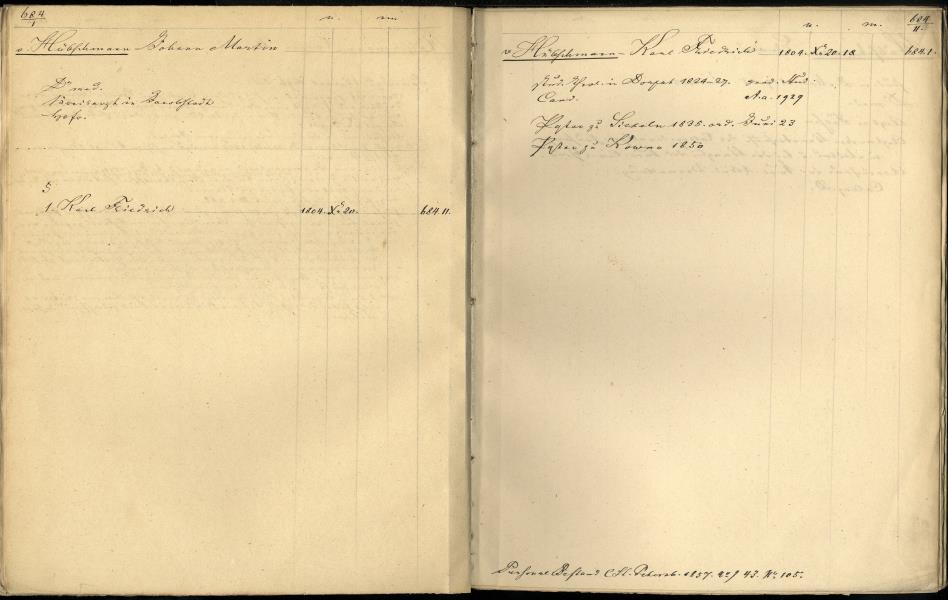 684
I
n. m
v. Hübschmann Johann Martin
Dr med.
Kreisarzt in Jacobstadt
Hofr.
S
1. Karl Friedrich 1804. Xbr 20. 684.II.
n. m. 684
II
v. Hübschmann Karl Friedrich 1804. Xbr 20. 18 684.I.
stud. theol. in Dorpat 1824-27. grad. Stud.
Cand. A.a. 1929
Pastor zu Sickeln 1835. ord. Juni 23
Pastor zu Kowno 1850
Personal Bestand C. St. Petersb. 1857. 43. No 105.